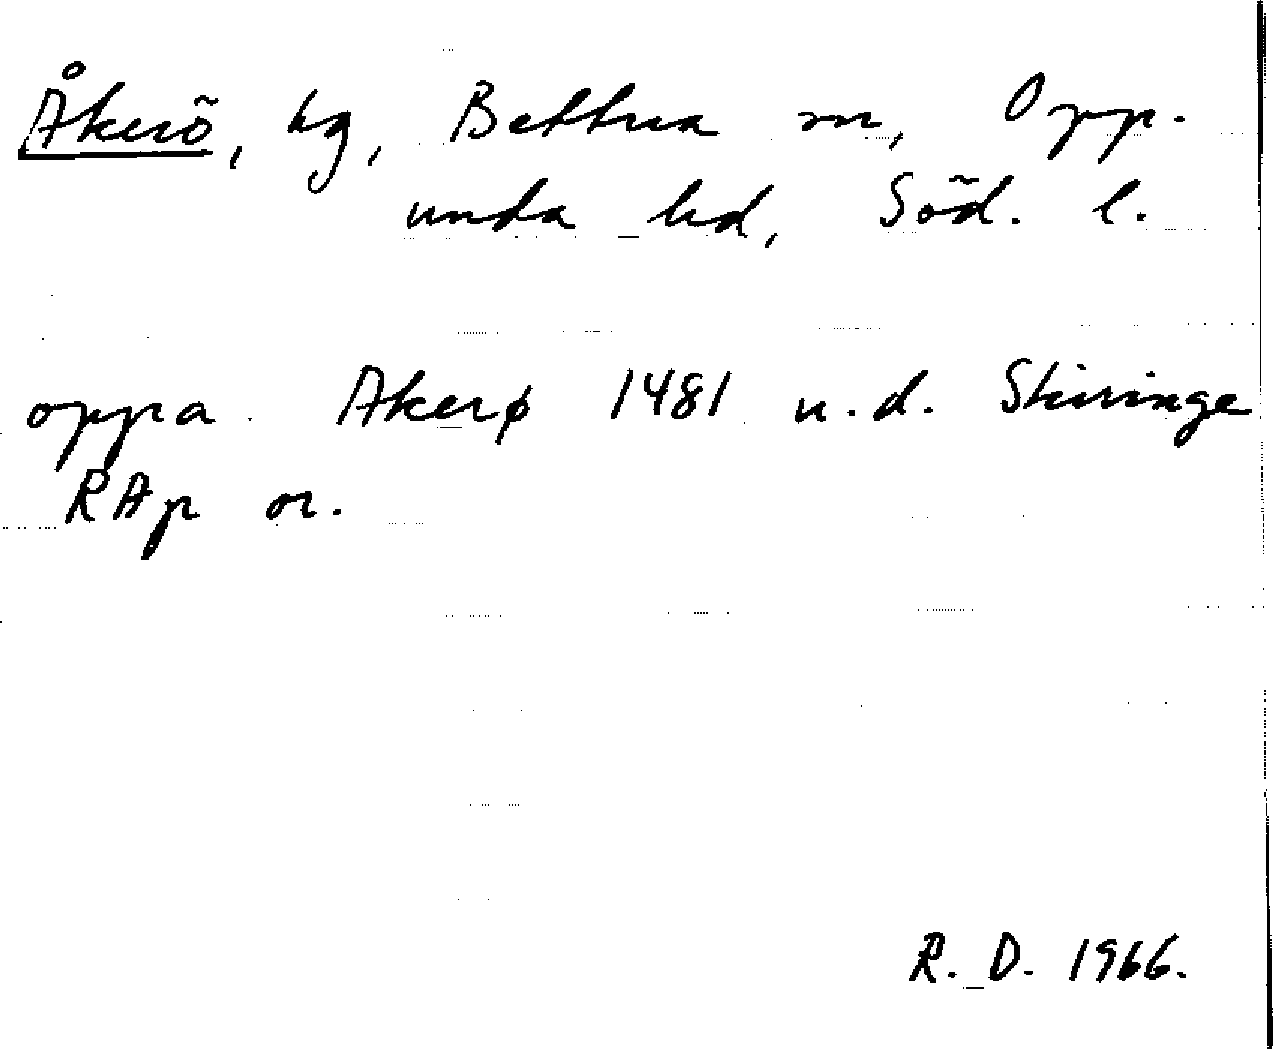 Åkerö, hg, Bettna sn, Opp-
unda hd, Söd. l.
oppa Akerø 1481 u.d. Skiringe
RAp or.
R. D. 1966.